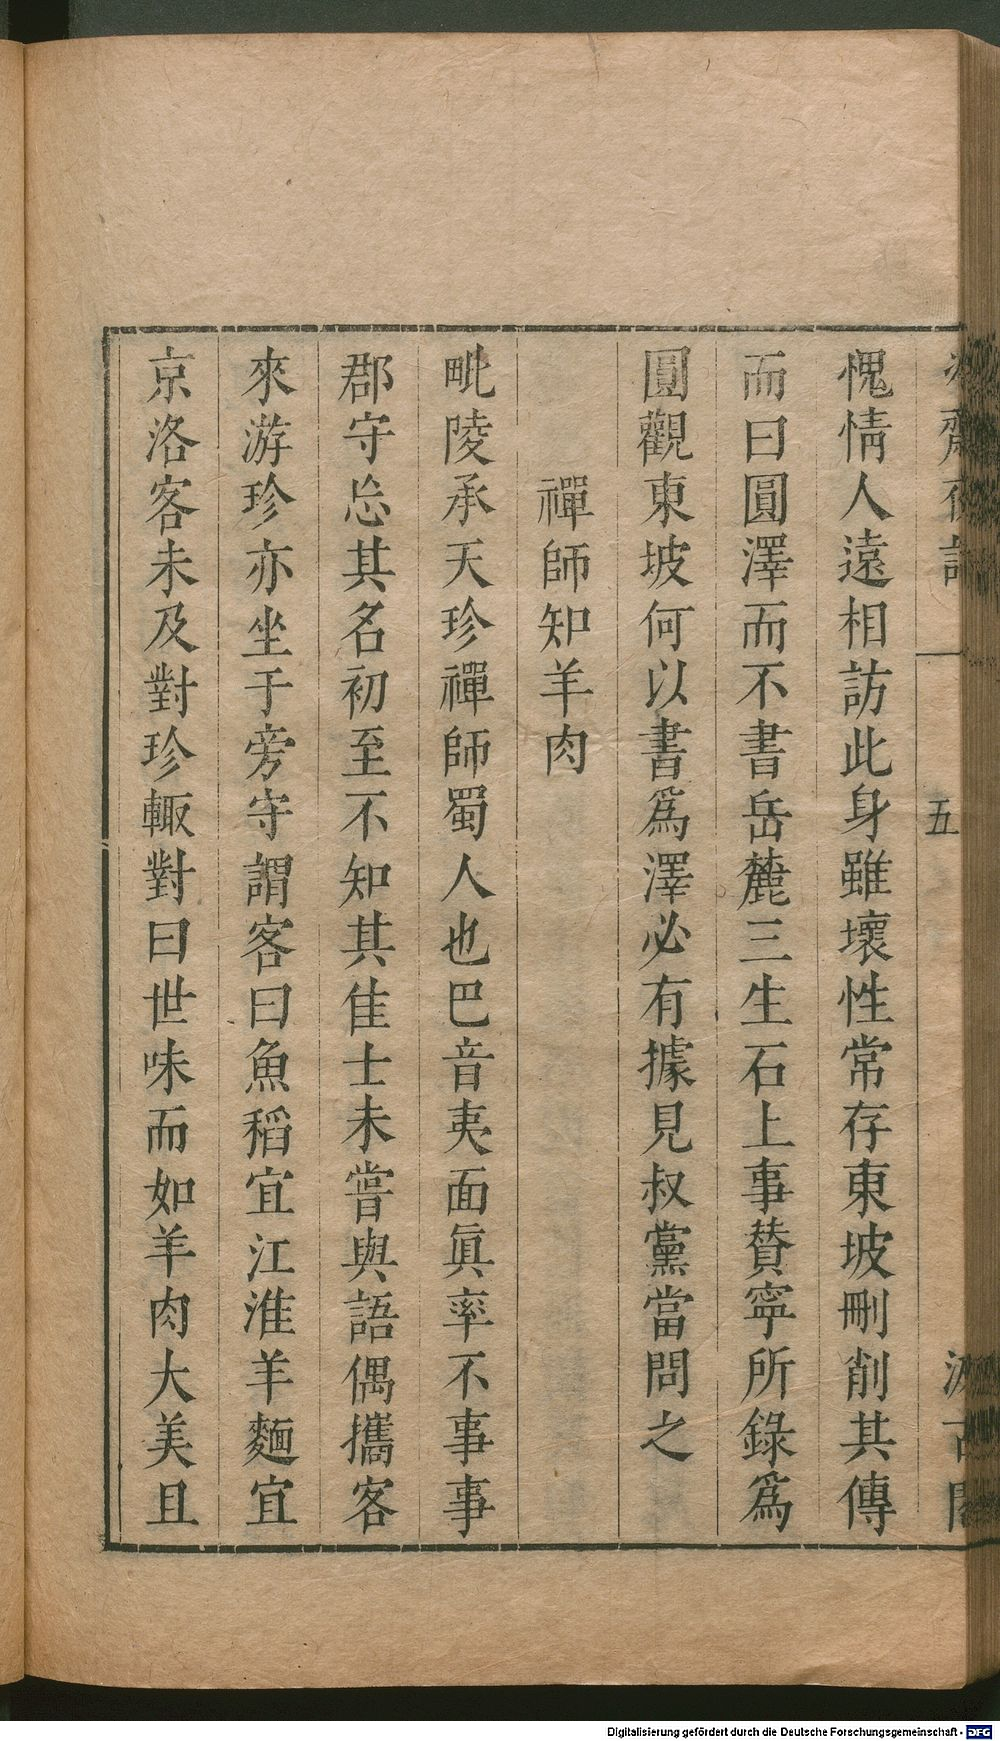 愧情人遠相訪此身雖壞性常存東坡刪削其傳
而曰圓澤而不書岳麓三生石上事賛寧所錄爲
圓觀東坡何以書爲澤必有據見叔黨當問之
禪師知羊肉
毗陵承天珍禪師蜀人也巴音夷面眞率不事事
郡守忩其名初至不知其佳士未嘗與語偶攜客
來游珍亦坐于旁守謂客曰魚稻宜江淮羊麵宜
京洛客未及對珍輙對曰世味而如羊肉大美且
五
Digitalisierung gefördert durch die Deutsche Forschungsgemeinschaft - DFG